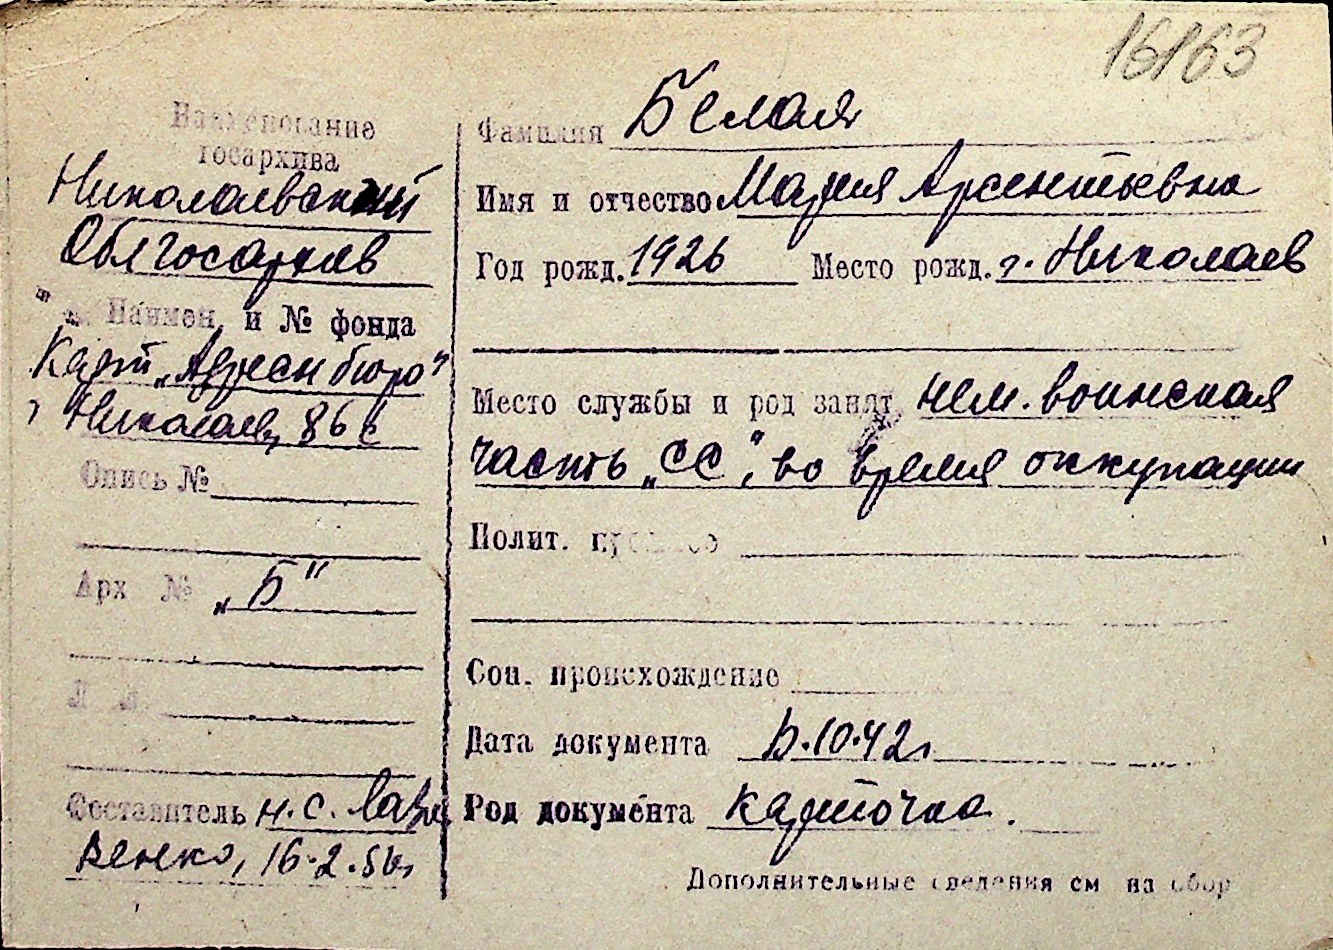 16163
Наименование
госархива
Николаевский
Облгосархив
Наимен. и № фонда
Карт. „Адресн бюро"
г Николаев, 86 с
Опись №
Арх №
„Б"
Составитель н.с.
16.2.56г
Фамилия Белая
Имя и отчество Мария Арсентьевна
Год рожд. 1926 Место рожд. г. Николаев
Место службы и род занят. нем. воинская
часть „СС", во время оккупации
Полит. прошлое
Соц. происхождение
Дата документа .10.42г
Род документа карточка.
Дополнительные сведения см на обор